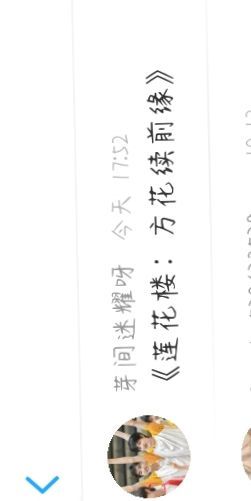 芽间迷耀呀 今天 17:52
《莲花楼：方花续前缘》